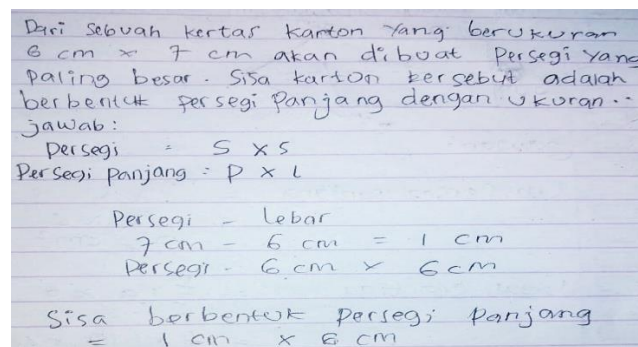 Dari sebuah kertas karton yang berukuran
6 cm x 7 cm akan dibuat persegi yang
paling besar. Sisa karton tersebut adalah
berbentuk persegi panjang dengan ukuran..
jawab :
persegi = S x S
Persegi panjang : P x L
Persegi - lebar
7 cm - 6 cm = 1 cm
Persegi - 6 cm x 6 cm
Sisa berbentuk persegi panjang
= 1 cm x 6 cm